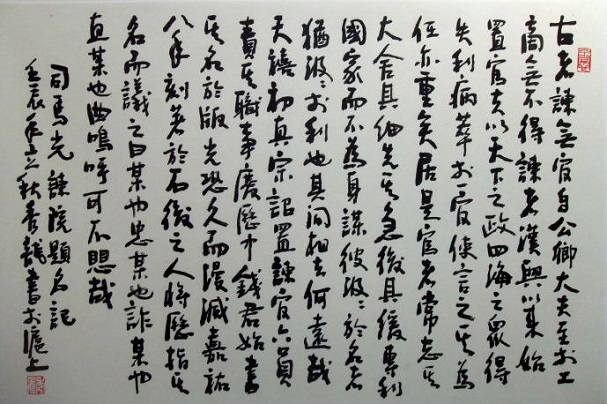 古者諫無官自公卿大夫至於工
商無不得諫者漢興以來始
置官夫以天下之政四海之眾得
失利病萃於一官使言之其為
任亦重矣居是官者常志其
大舍其細先其急後其緩專利
國家而不為身謀彼汲汲於名者
猶汲汲於利也其間相去何遠哉
天禧初真宗詔置諫官六員
責其職事慶歷中錢君始書
其名於版光恐久而漫滅嘉祐
八年刻著於石後之人將歷指其
名而議之曰某也忠某也詐某也
直某也曲嗚呼可不懼哉
司馬光諫院題名記
壬辰年立秋書於滬上